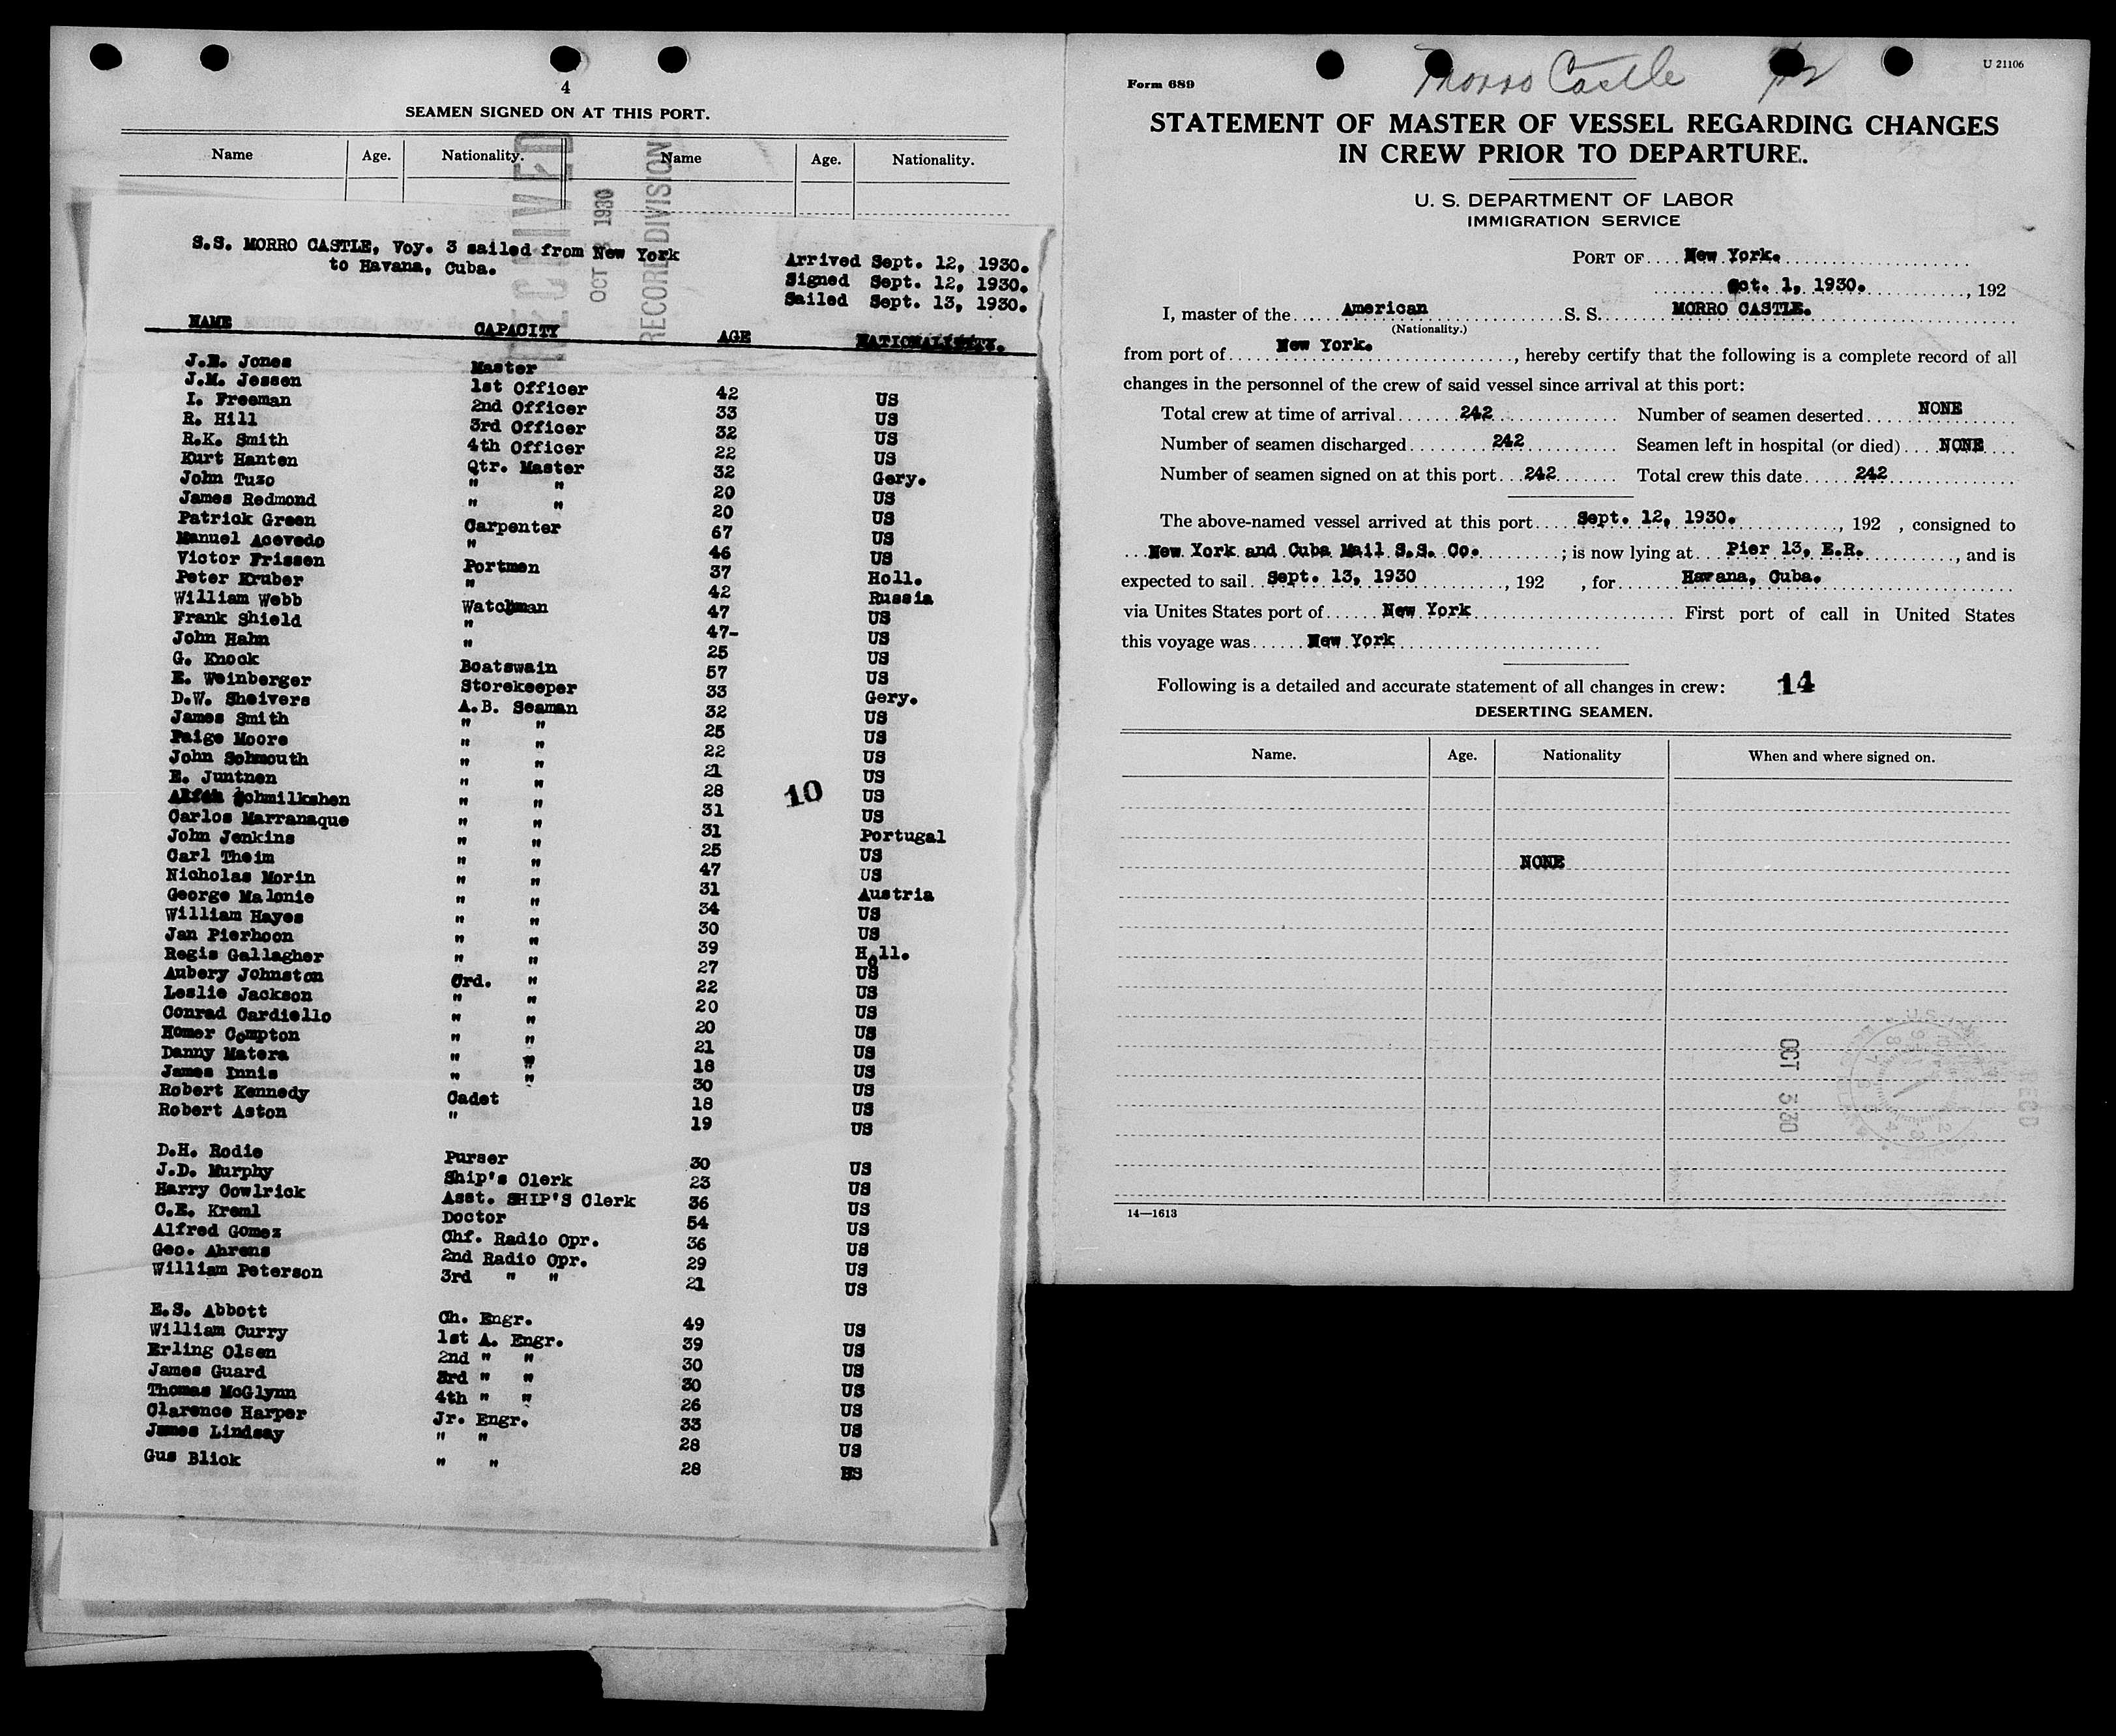 4
SEAMEN SIGNED ON AT THIS PORT.
Name Age. Nationality. Name Age. Nationality.
RECEIVED
OCT 3 1930
RECORD DIVISION
S.S. MORRO CASTLE, Voy. 3 sailed from New York
to Havana, Cuba.
Arrived Sept. 12, 1930.
Signed Sept. 12, 1930.
Sailed Sept. 13, 1930.
NAME CAPACITY AGE
J.E. Jones Master
J.M. Jessen 1st Officer 42 US
I. Freeman 2nd Officer 33 US
R. Hill 3rd Officer 32 US
R.K. Smith 4th Officer 22 US
Kurt Hanten Qtr. Master 32 Gery.
John Tuzo " " 20 US
James Redmond " " 20 US
Patrick Green Carpenter 67 US
Manuel Acevedo " 46 US
Victor Frissen Portmen 37 Holl.
Peter Kruber " 42 Russia
William Webb Watchman 47 US
Frank Shield " 47- US
John Hahn " 25 US
G. Knock Boatswain 57 US
E. Weinberger Storekeeper 33 Gery.
D.W. Sheivers A.B. Seaman 32 US
James Smith " " 25 US
Paige Moore " " 22 US
John Sohmouth " " 21 US
E. Juntnen " " 28 US
Schmilkshen " " 31 US
10
Carlos Marranaque " " 31 Portugal
John Jenkins " " 25 US
Carl Theim " " 47 US
Nicholas Morin " " 31 Austria
George Malonie " " 34 US
William Hayes " " 30 US
Jan Pierhoon " " 39 Holl.
Regis Gallagher " " 27 US
Aubery Johnston Ord. " 22 US
Leslie Jackson " " 20 US
Conrad Cardiello " " 20 US
Homer Compton " " 21 US
Danny Matera " " 18 US
James Innis " " 30 US
Robert Kennedy Cadet 18 US
Robert Aston " 19 US
D.H. Rodie Purser 30 US
J.D. Murphy Ship's Clerk 23 US
Harry Cowlrick Asst. SHIP'S Clerk 36 US
C.E. Kreml Doctor 54 US
Alfred Gomez Chf. Radio Opr. 36 US
Geo. Ahrens 2nd Radio Opr. 29 US
William Peterson 3rd " " 21 US
E.S. Abbott Ch. Engr. 49 US
William Curry 1st A. Engr. 39 US
Erling Olsen 2nd " " 30 US
James Guard 3rd " " 30 US
Thomas McGlynn 4th " " 26 US
Clarence Harper Jr. Engr. 33 US
James Lindsay " " 28 US
Gus Blick " " 28 US
Form 689
Morro Castle
U 21106
STATEMENT OF MASTER OF VESSEL REGARDING CHANGES
IN CREW PRIOR TO DEPARTURE.
U. S. DEPARTMENT OF LABOR
IMMIGRATION SERVICE
PORT OF New York.
Oct. 1, 1930. , 192
I, master of the American S. S. MORRO CASTLE.
(Nationality.)
from port of New York. , hereby certify that the following is a complete record of all
changes in the personnel of the crew of said vessel since arrival at this port:
Total crew at time of arrival 242 Number of seamen deserted NONE
Number of seamen discharged 242 Seamen left in hospital (or died) NONE
Number of seamen signed on at this port 242 Total crew this date 242
The above-named vessel arrived at this port Sept. 12, 1930. , 192 , consigned to
New York and Cuba Mail S.S. Co. ; is now lying at Pier 13, E.R. , and is
expected to sail Sept. 13, 1930 , 192 , for Havana, Cuba.
via Unites States port of New York First port of call in United States
this voyage was New York
Following is a detailed and accurate statement of all changes in crew: 14
DESERTING SEAMEN.
Name. Age. Nationality When and where signed on.
NONE
OCT 3 30
RECD
14—1613